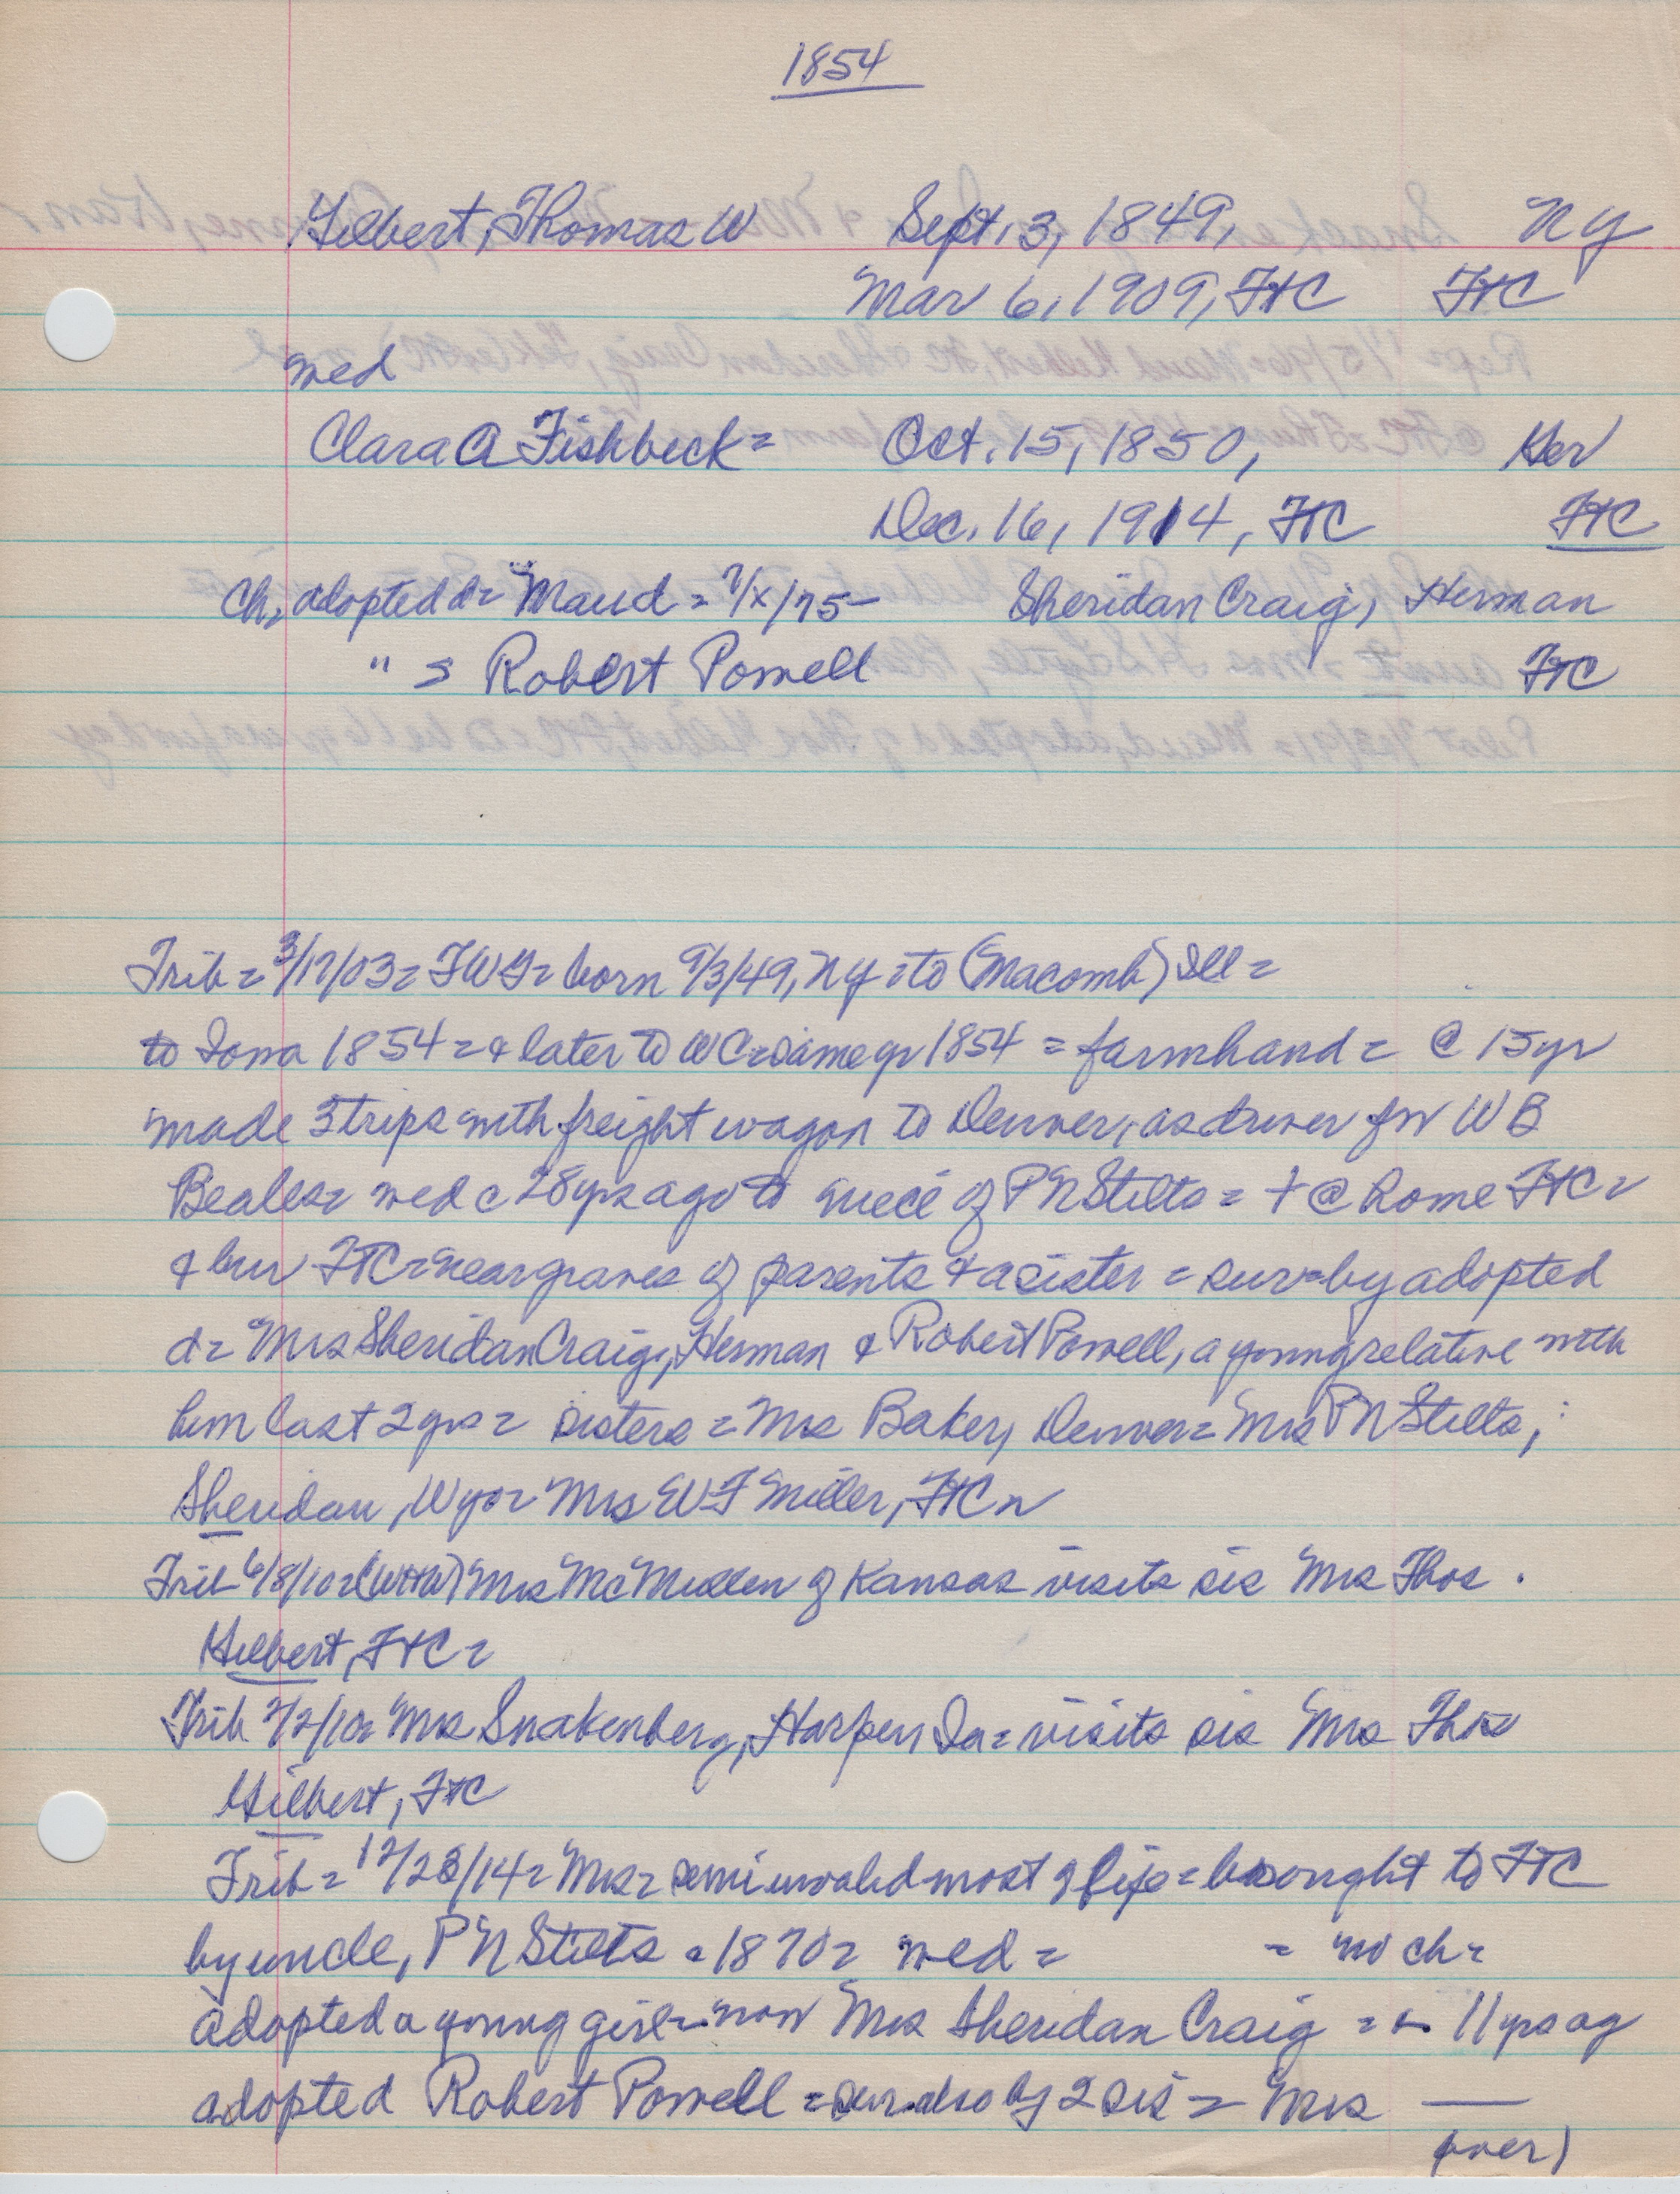 1854
Gilbert, Thomas W Sept. 3, 1849, NY
Mar 6, 1909, FTC FTC
med
Clara A Fishbeck = Oct. 15, 1850, Ger
Dec. 16, 1914, FTC FTC
Ch, adopted d = Maud = ?/x/75 – Sheridan Craig, Herman
" s Robert Powell FTC
Trib = 3/12/03 = TWG = born 9/3/49, NY = to (Macomb) Ill =
to Iowa 1854 = & later to WC = same yr 1854 = farmhand = @ 15 yr
made 3 trips with freight wagon to Denver, as driver for WB
Beales = med c 28 yrs ago to niece of PN Stilts = + @ home FTC =
& bur FTC = near graves of parents & a sister = surv by adopted
d = Mrs Sheridan Craig, Herman & Robert Powell, a young relative with
him last 2 yrs = sisters = Mrs Baker, Denver = Mrs PN Stilts,
Sheridan, Wyo = Mrs WF Miller, FTC
Trib 6/8/10 = (W+W) Mrs McMillen of Kansas visits sis Mrs Thos.
Gilbert, FTC =
Trib 7/2/10 = Mrs Snakenberg, Harper, Ia = visits sis Mrs Thos
Gilbert, FTC
Trib = 12/28/14 = Mrs = semi invalid most of life = brought to FTC
by uncle, PN Stilts = 1870 = med = = no ch =
adopted a young girl = now Mrs Sheridan Craig = c. 11 yrs ag
adopted Robert Powell = sur. also by 2 sis = Mrs ——
(over)